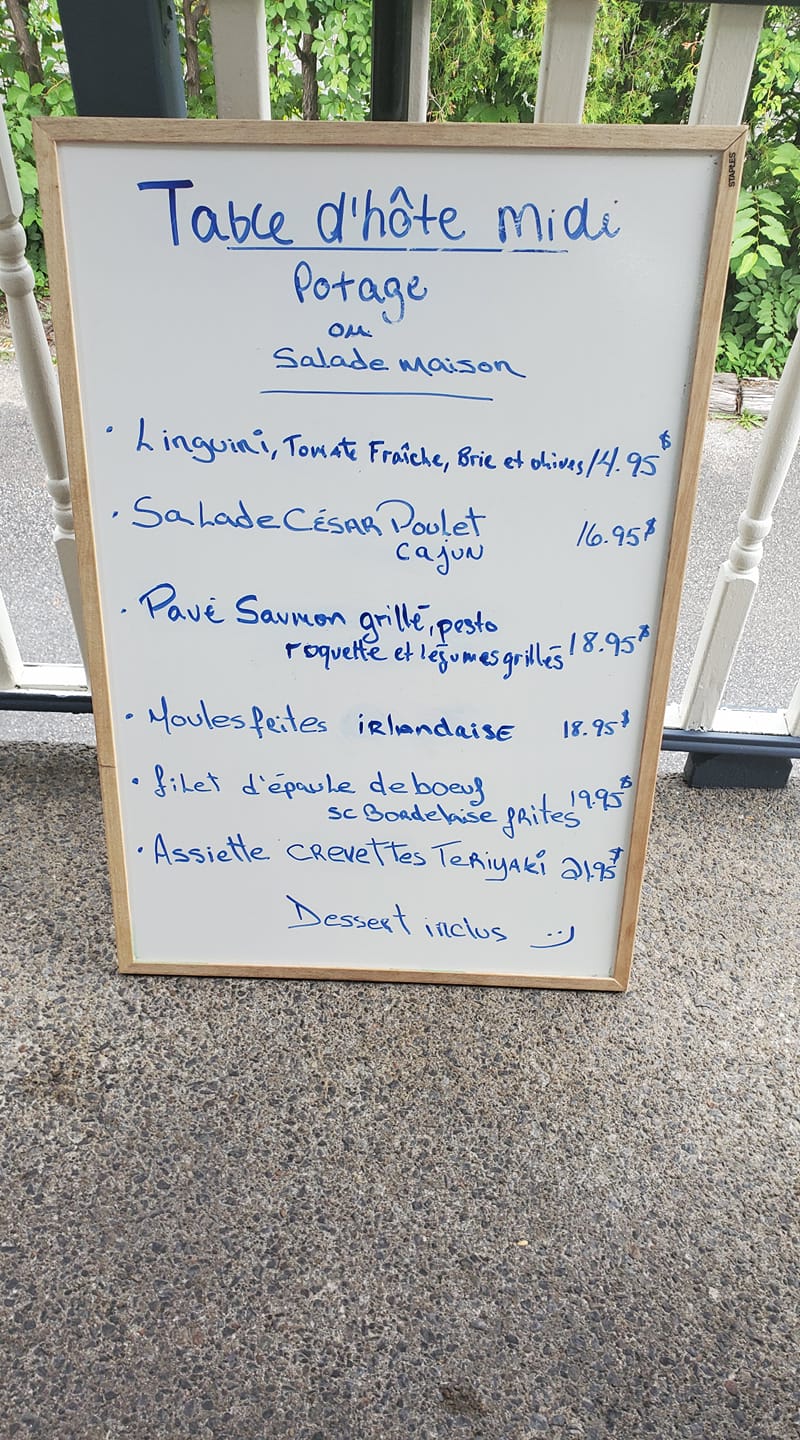 STAPLES
Table d'hôte midi
Potage
ou
Salade maison
• Linguini, Tomate Fraîche, Brie et olives 14.95$
• Salade CÉSAR Poulet 16.95$
cajun
• Pavé Saumon grillé, pesto
roquette et légumes grillés 18.95$
• Moules frites irlandaise 18.95$
• filet d'épaule de boeuf
sc Bordelaise frites 19.95$
• Assiette crevettes Teriyaki 21.95$
Dessert inclus :)